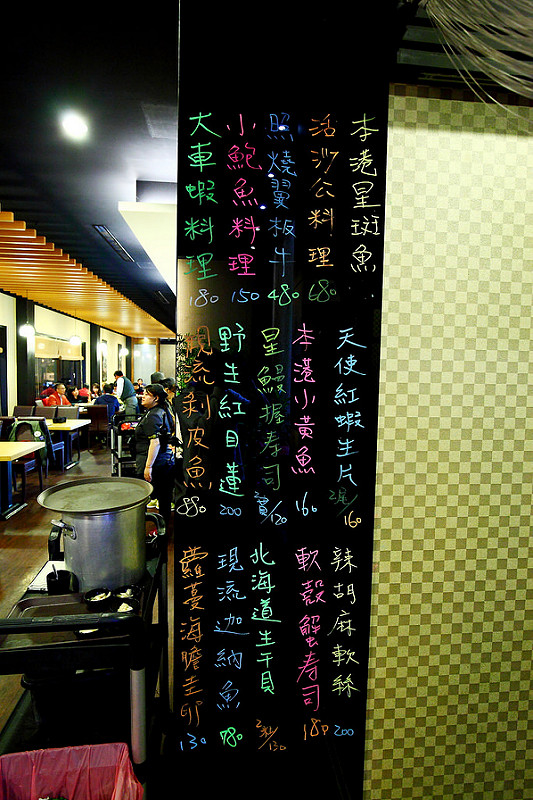 本港星斑魚
活沙公料理 680
照燒翼板牛 480
小鮑魚料理 150
大車蝦料理 180
天使紅蝦生片 2尾/160
本港小黃魚 160
星鰻握壽司 2貫/120
野生紅目蓮 200
現流剥皮魚 880
辣胡麻軟絲 200
軟殼蟹壽司 180
北海道生干貝 2粒/130
現流迦納魚 780
蘿蔓海膽圭卵 130